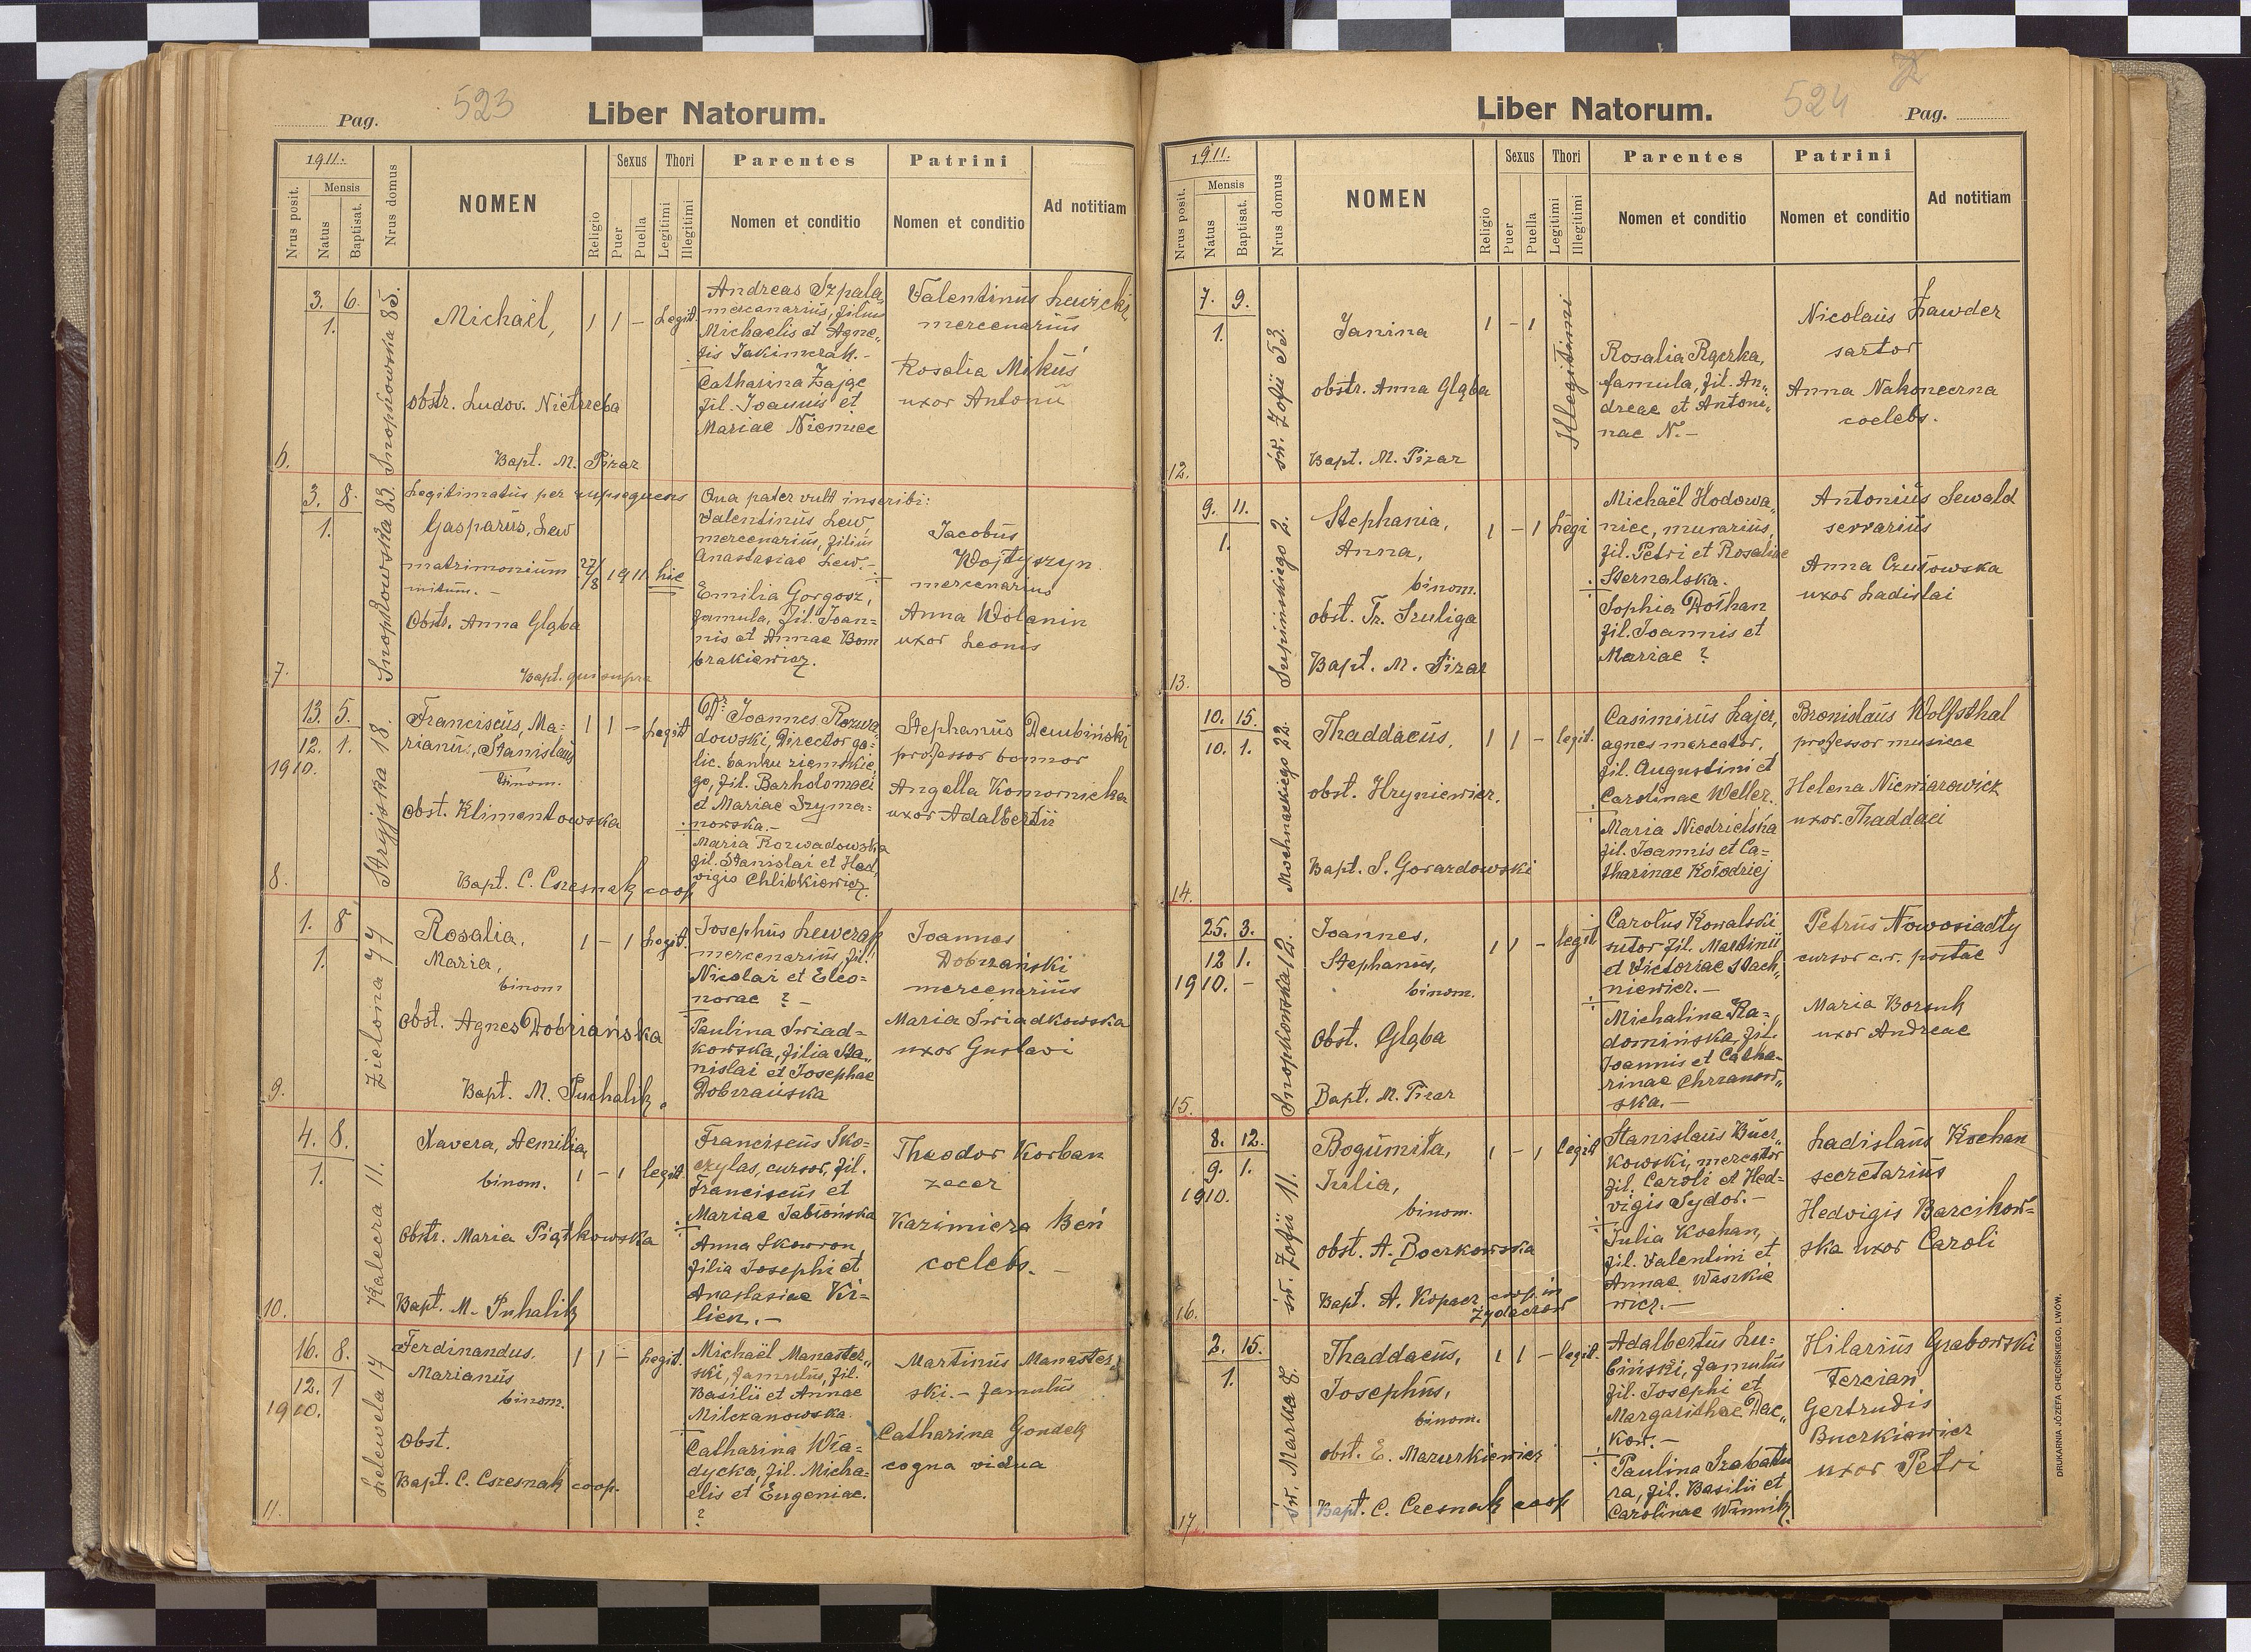 523
Pag.
Liber Natorum.
1911.
Nrus posit.
Mensis
Natus
Baptisat.
Nrus domus
NOMEN
Religio
Sexus
Puer
Puella
Thori
Legitimi
Illegitimi
Parentes
Nomen et conditio
Patrini
Nomen et conditio
Ad notitiam
6.
3. 6.
1.
Snopkowska 85.
Michaël,
obstr. Ludov. Nietrzeba
Bapt. M. Pizar
1 1 - Legit.
Andreas Szpala
mercenarius, filius
Michaelis et Agne„
tis Jakimczak. -
Catharina Zając
fil. Joannis et
Mariae Niemiec
Valentinus Lewicki
mercenarius
Rosalia Mikuś
uxor Antonii
7.
3. 8.
1.
Snopkowska 83.
Legitimatus per supsequens
Gasparus, Lew
matrimonium 27/8 1911 hic
initum. -
Obstr. Anna Gląba
Bapt. qui supra
Qua pater vult inscribi:
Valentinus Lew
mercenarius, filius
Anastasiae Lew. -
Emilia Gorgosz,
famula, fil. Joan=
nis et Annae Bom
brakiewicz.
Jacobus
Wojtyszyn
mercenarius
Anna Wolanin
uxor Leonis
8.
13. 5.
12. 1.
1910.
Stryjska 18.
Franciscus, Ma=
rianus, Stanislaus
binom.
Obst. Klimentowska
Bapt. C. Czesnak coop.
1 1 - Legit
Dr Joannes Rozwa
dowski, Director ga=
lic. banku ziemskie
go, fil. Bartholomaei
et Mariae Szyma=
nowska. -
Maria Rozwadowska
fil. Stanislai et Hed
vigis Chlibkiewicz
Stephanus Dembiński
professor
Angella Komornicka
uxor Adalbertii
9.
1. 8
1.
Zielona 77
Rosalia,
Maria,
binom
Obst. Agnes Dobrzańska
Bapt. M. Puchalik.
1 - 1 Legit.
Josephus Lewczak
mercenarius, fil.
Nicolai et Eleo=
norae ? -
Paulina Świad=
kowska, filia Sta„
nislai et Josephae
Dobrzańska
Joannes
Dobrzański
mercenarius
Maria Świadkowska
uxor Gustavi
10.
4. 8.
1.
Kalecza 11.
Xavera, Aemilia,
binom.
Obstr. Maria Piątkowska
Bapt. M. Puhalik
1 - 1 legit
Franciscus Sko=
czylas, cursor, fil.
Franciscus et
Mariae Jabłońska
Anna Skowron
filia Josephi et
Anastasiae Ki=
licz. -
Theodor Korban
zecer
Kazimiera Beń
coelebs. -
11.
16. 8.
12. 1
1910.
Lelewela 17
Ferdinandus,
Marianus
binom.
Obst.
Bapt. C. Czesnak coop.
1 1 - Legit.
Michaël Manaster„
ski, famulus, fil.
Basilii et Annae
Milczanowska
Catharina Wła=
dycka, fil. Micha=
elis et Eugeniae.
?
Martinus Manaster„
ski. - famulus
Catharina Gondek
cogna vidua
Liber Natorum.
524
Pag.
1911.
Nrus posit.
Mensis
Natus
Baptisat.
Nrus domus
NOMEN
Religio
Sexus
Puer
Puella
Thori
Legitimi
Illegitimi
Parentes
Nomen et conditio
Patrini
Nomen et conditio
Ad notitiam
12.
7. 9.
1.
św. Zofii 53.
Janina
obstr. Anna Gląba
Bapt. M. Pizar
1 - 1
Illegitimi
Rosalia Rączka,
famula, fil. An„
dreae et Antoni„
nae N. -
Nicolaus Zawder
sartor
Anna Nakoneczna
coelebs.
13.
9. 11.
1.
Supińskiego 2.
Stephania,
Anna,
binom.
obst. Fr. Szuliga
Bapt. M. Pizar
1 - 1 Legi
Michaël Hodowa„
niec, murarius,
fil. Petri et Rosaliae
Sternalska.
Sophia Dołhan
fil. Joannis et
Mariae ?
Antonius Sewald
serrarius
Anna Czułowska
uxor Ladislai
14.
10. 15.
10. 1.
Mochnackiego 22.
Thaddaeus,
obst. Hryniewicz.
Bapt. S. Gorazdowski
1 1 - legit.
Casimirus Lajer,
agnes mercator,
fil. Augustini et
Carolinae Weller.
Maria Niedzielska
fil. Joannis et Ca=
tharinae Kołodziej
Bronislaus Wolfsthal
professor musicae
Helena Niewiarowicz
uxor. Thaddaei
15.
25. 3.
12 1.
1910. -
Snopkowska 12.
Joannes,
Stephanus,
binom.
Obst. Gląba
Bapt. M. Pizar
1 1 - legit
Carolus Kowalski
sutor fil. Martinii
et Victoriae Stach„
niewicz. -
Michalina Ra=
domińska, fil.
Joannis et Catha=
rinae Chrzanow„
ska. -
Petrus Nowosiadły
cursor c.r. postae
Maria Borsuk
uxor Andreae
16.
8. 12.
9. 1.
1910.
św. Zofii 11.
Bogumiła,
Julia,
binom.
obst. A. Boczkowska
Bapt. A. Kopacz coop. in
Żydaczów
1 - 1 Legit
Stanislaus Bucz„
kowski, mercator
fil. Caroli et Hed=
vigis Sydor. -
Julia Kochan,
fil. Valentini et
Annae Waszkie
wicz. -
Ladislaus Kochan
secretarius
Hedvigis Barcikow=
ska uxor Caroli
17.
2. 15.
1.
św. Marka 8.
Thaddaeus,
Josephus,
binom.
obst. E. Mazurkiewicz
Bapt. C. Czesnak coop
1 1 - legit.
Adalbertus Lu=
biński, famulus
fil. Josephi et
Margarithae Dac„
kow. -
Paulina Szabatu
ra, fil. Basilii et
Carolinae Winnik.
Hilarius Grabowski
Tercian
Gertrudis
Buczkiewicz
uxor Petri
DRUKARNIA JÓZEFA CHĘCIŃSKIEGO, LWÓW.